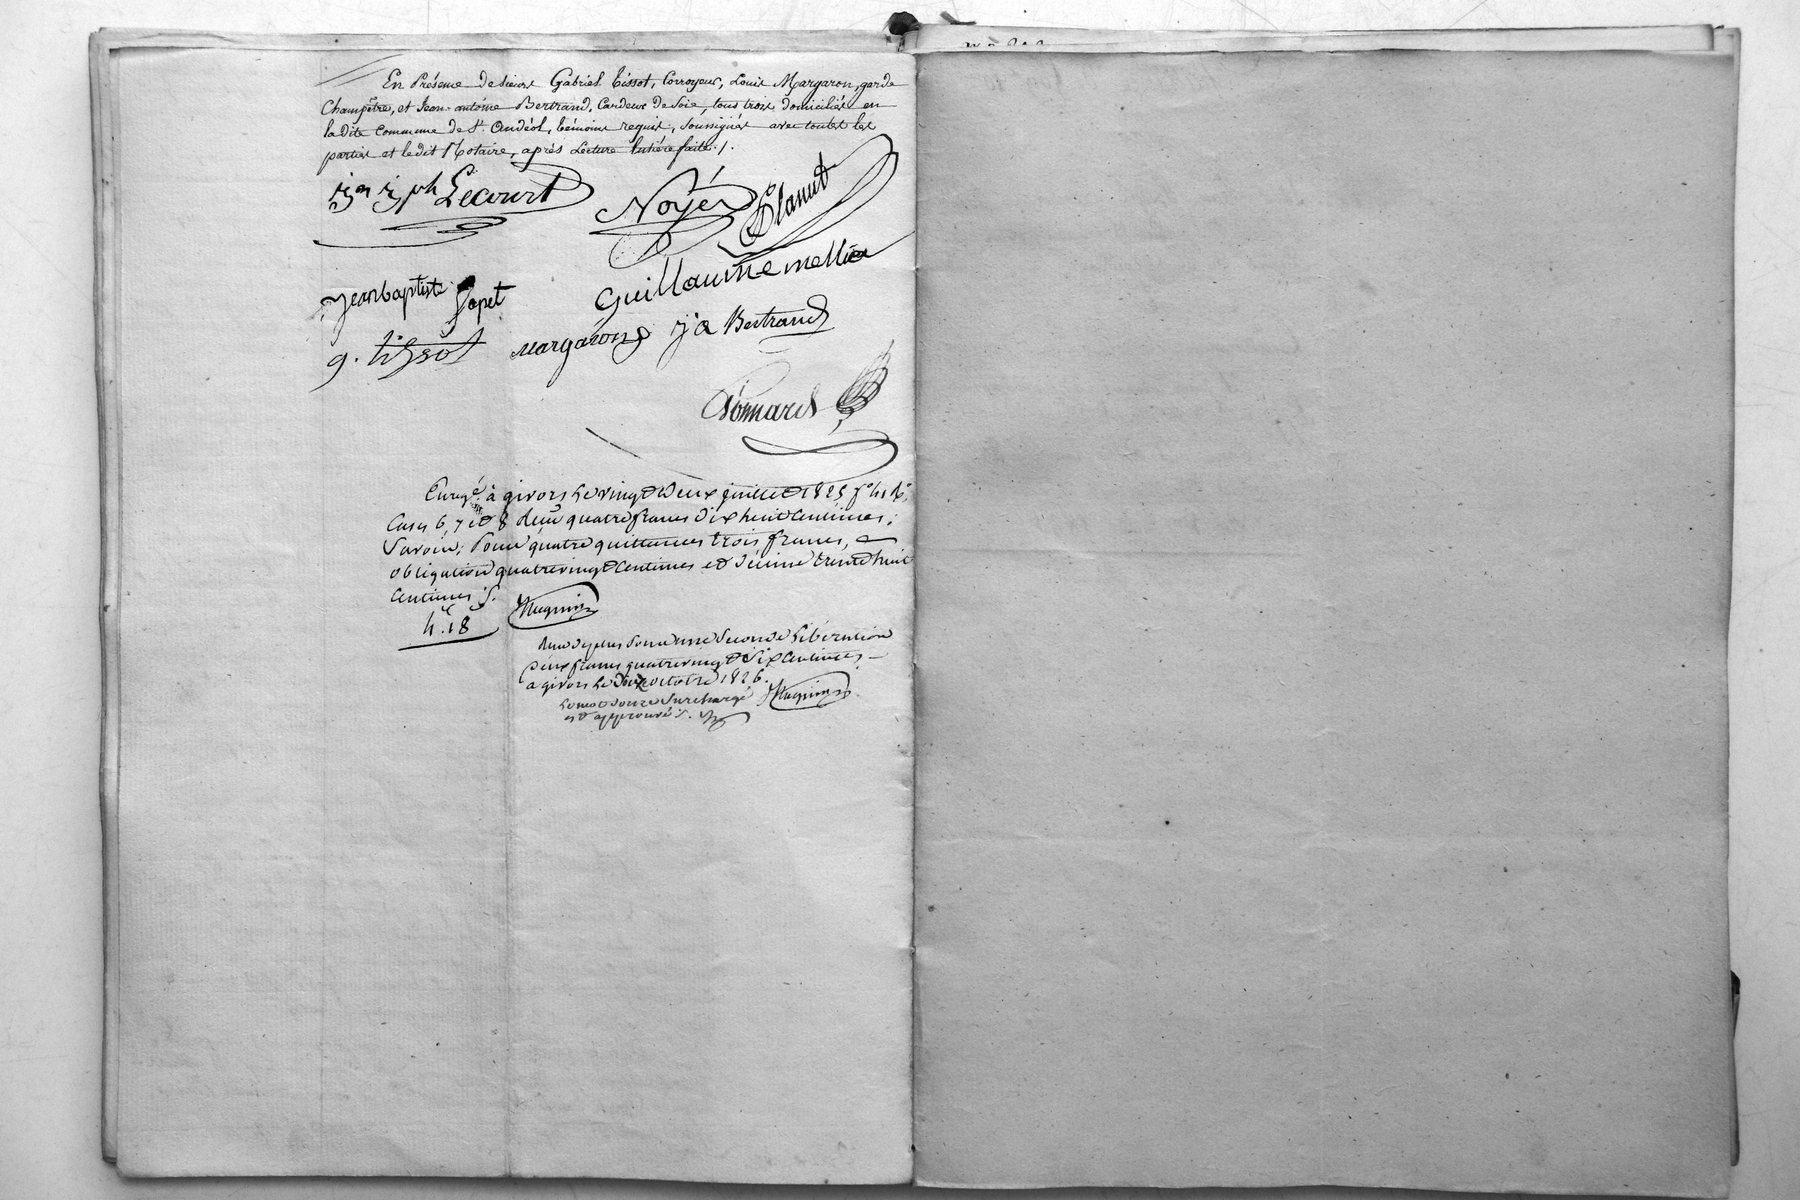 En Présence de Sieurs Gabriel Tissot, Corroyeur, Louis Margaron, garde
Champêtre, et Jean-antoine Bertrand, Cardeur de Soie, tous trois domiciliés en
la dite Commune de St. Andéol, témoins requis, Soussignés avec toutes les
parties et le dit Notaire, après Lecture Entière faite ./.
Lecourt
Noyer
Planut
Jean baptiste
Guillaume mellier
g. tissot
margaron
j a Bertrand
Enregé. à givors Le vingt Deux juillet 1825 fo
Cases 6, 7 et 8 Reçu quatre francs dix huit Centimes;
Savoir; Pour quatre quittances trois francs,
obligation quatrevingt Centimes et décime trente huit
Centimes ./.
4.18
Reçu de plus Pour une Seconde Libération
deux francs quatrevingt Six Centimes
a givors Le Douze octobre 1826.
Le mot douze Surchargé
est approuvé ./.